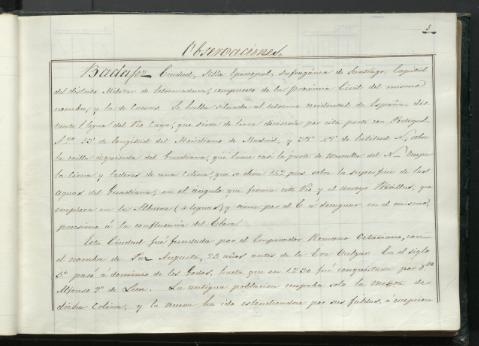 5
Observaciones.
Badajoz Ciudad, Silla Episcopal, sufragánea de Santiago, Capital
del distrito Militar de Extremadura, compuesto de la Provincia Civil del mismo
nombre, y la de Caceres. Se halla situada al estremo occidental de España dis-
tante 1 legua del Rio Caya, que sirve de linea divisoria por esta parte con Portugal
de longitud del Meridiano de Madrid, y de latitud N., sobre
la orilla izquierda del Guadiana, que lame casi la parte de
la cima y laderas de una colina, que se eleva 152 pies sobre la superficie de las
aguas del Guadiana, en el ángulo que forma este Rio y el arroyo Rivillas, que
en la Albuera (4 leguas) y viene por el E. á desaguar en el mismo,
procsimo á la confluencia del
Esta Ciudad fué fundada por el Emperador Romano Octaviano, con
el nombre de Pax Augusta, 22 años antes de la Era Vulgar. En el siglo
5º pasó á dominio de los Godos, hasta que en 1230 fué conquistada por Dn
Alfonso 9º de Leon. La antigua poblacion ocupaba solo la meseta de
dicha Colina, y la nueva ha ido estendiendose por sus faldas, á escepcion